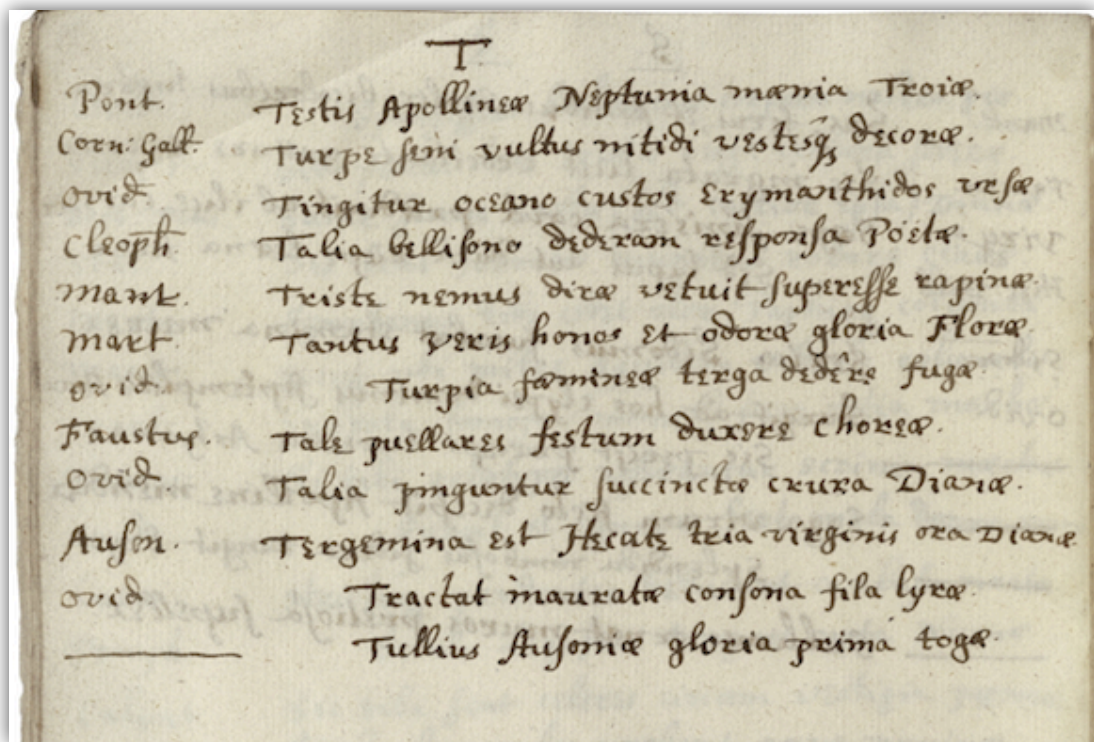 T
Pont. Testis Apollineæ Neptunia mænia Troiæ.
Corn: Gall. Turpe seni vultus nitidi vestesq̃ decoræ.
Ovid Tingitur oceano custos Erymanthidos ursæ
Cleoph Talia bellisono dederam responsa Poëtæ.
Mant. Triste nemus diræ vetuit superesse rapinæ.
Mart. Tantus veris honos et odoræ gloria Floræ.
Ovid. Turpia fæmineæ terga dedêre fugæ
Faustus. Tale puellares festum duxere choreæ.
Ovid Talia pinguntur succinctæ crura Dianæ.
Auson. Tergemina est Hecate tria virginis ora Dianæ.
Ovid Tractat inauratæ consona fila lyræ.
Tullius Ausoniæ gloria prima togæ.